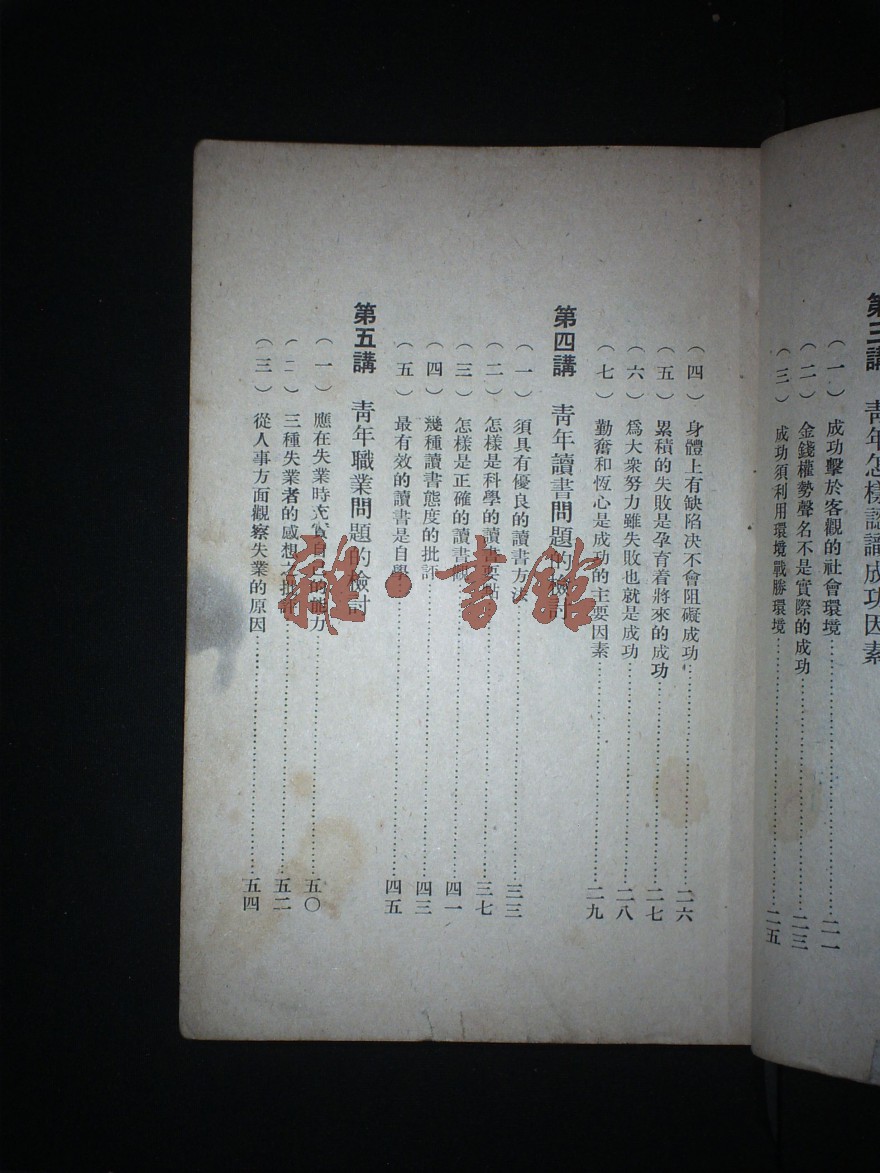 第三講　青年怎樣認識成功因素
（一）成功繫於客觀的社會環境………二一
（二）金錢權勢聲名不是實際的成功………二三
（三）成功須利用環境戰勝環境………二五
（四）身體上有缺陷决不會阻礙成功………二六
（五）累積的失敗是孕育着將來的成功………二七
（六）爲大衆努力雖失敗也就是成功………二八
（七）勤奮和恆心是成功的主要因素………二九
第四講　靑年讀書問題的檢討
（一）須具有優良的讀書方法………三三
（二）怎樣是科學的讀書要點………三七
（三）怎樣是正確的讀書觀………四一
（四）幾種讀書態度的批評………四三
（五）最有效的讀書是自學………四五
第五講　靑年職業問題的檢討
（一）應在失業時充實自己的能力………五〇
（二）三種失業者的感想之批評………五二
（三）從人事方面觀察失業的原因………五四
雜·書館